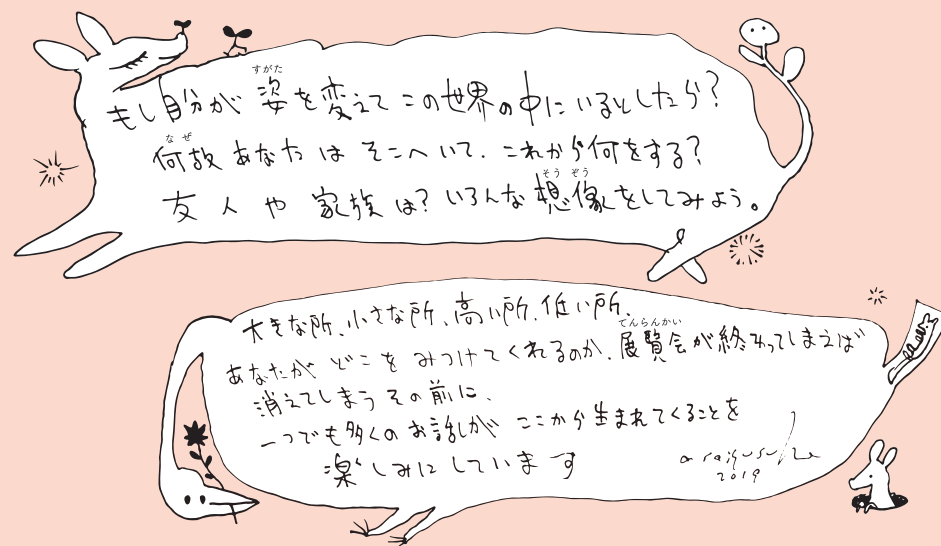 もし自分が姿を変えてこの世界の中にいるとしたら?
何故あなたはそこへいて、これから何をする?
友人や家族は?いろんな想像をしてみよう。
大きな所、小さな所、高い所、低い所、
あなたがどこをみつけてくれるのか、展覧会が終わってしまえば
消えてしまうその前に、
一つでも多くのお話しがここから生まれてくることを
楽しみにしています
2019